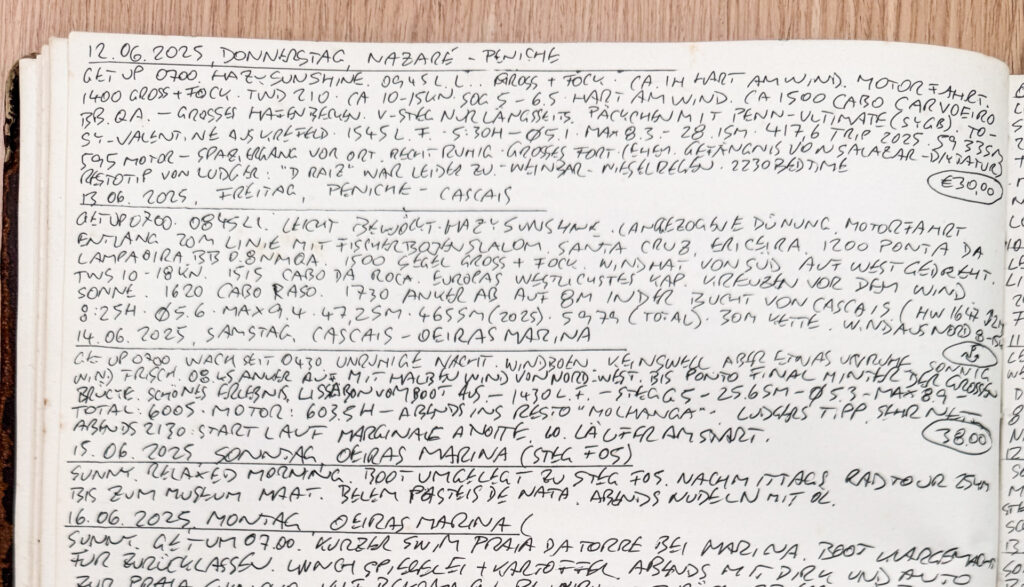 12.06.2025, DONNERSTAG, NAZARÉ - PENICHE
GET UP 0700. HAZY SUNSHINE. 0945 L.L. GROSS + FOCK. CA. 1H HART AM WIND. MOTORFAHRT.
1400 GROSS + FOCK. TWD 210. CA 10-15KN SOG 5-6.5 HART AM WIND. CA 1500 CABO CARVOEIRO
BB. QA. - GROSSES HAFENBECKEN. V-STEG NUR LÄNGSSEITS. PÄCKCHEN MIT PENN-ULTIMATE (SYGB). TO-
SY-VALENTINE AUS KREFELD. 1545 L.F. 5.30H - Ø5.1. MAX 8.3. - 28.15M. 417,6 TRIP 2025. 5933SM
595 MOTOR - SPAZIERGANG VOR ORT. RECHT RUHIG. GROSSES FORT (EHEM. GEFÄNGNIS VON SALAZAR-DIKTATUR
RESTOTIP VON LUDGER: "D RAIZ" WAR LEIDER ZU. WEINBAR. NIESELREGEN. 2230 BEDTIME
€30,00
13.06.2025, FREITAG, PENICHE - CASCAIS
GET UP 0700. 0845 LL. LEICHT BEWÖLKT. HAZY SUNSHINE. LANGEZOGENE DÜNUNG. MOTORFAHRT
ENTLANG 20M LINIE MIT FISCHERBOJENSLALOM. SANTA CRUZ, ERICEIRA. 1200 PONTA DA
LAMPAOIRA BB 0.8 NM QA. 1500 SEGEL GROSS + FOCK. WIND HAT VON SÜD AUF WEST GEDREHT.
TWS 10-18KN. 1515 CABO DA ROCA. EUROPAS WESTLICHSTES KAP. KREUZEN VOR DEM WIND
SONNE. 1620 CABO RASO. 1730 ANKER AB AUF 8M IN DER BUCHT VON CASCAIS (HW 1647
8:25H. Ø5.6. MAX 9,4. 47,25M. 465SM (2025). 5979 (TOTAL). 30M KETTE. WIND AUS NORD 8-15
14.06.2025, SAMSTAG CASCAIS - OEIRAS MARINA
GET UP 0700. WACH SEIT 0430 UNRUHIGE NACHT. WINDBÖEN. KEIN SWELL ABER ETWAS UNRUHE. SONNIG
WIND FRISCH. 0845 ANKER AUF MIT HALBEN WIND VON NORD-WEST. BIS PONTO FINAL HINTER DER GROSSEN
BRÜCKE. SCHÖNES ERLEBNIS, LISSABON VOM BOOT AUS - 1430 L.F. - STEG G5 - 25.65M - Ø5.3 - MAX 8.9 -
TOTAL: 6005. MOTOR: 603.5H - ABENDS INS RESTO "MOCHANGA". LUDGERS TIPP. SEHR NETT
ABENDS 2130 START LAUF MARGINALE A NOITE. LÄUFER AM START.
38.00
15.06.2025 SONNTAG OEIRAS MARINA (STEG F05)
SUNNY. RELAXED MORNING. BOOT UMGELEGT ZU STEG F05. NACHMITTAGS RADTOUR 25KM
BIS ZUM MUSEUM MAAT. BELEM PASTEIS DE NATA. ABENDS NUDELN MIT ÖL.
16.06.2025, MONTAG OEIRAS MARINA (
SUNNY. GET UM 07.00. KURZER SWIM PRAIA DA TORRE BEI MARINA. BOOT KLARGEMACHT
FÜR ZURÜCKLASSEN. + KARTOFFEL ABENDS MIT DIRK UND
ZUR PRAIA